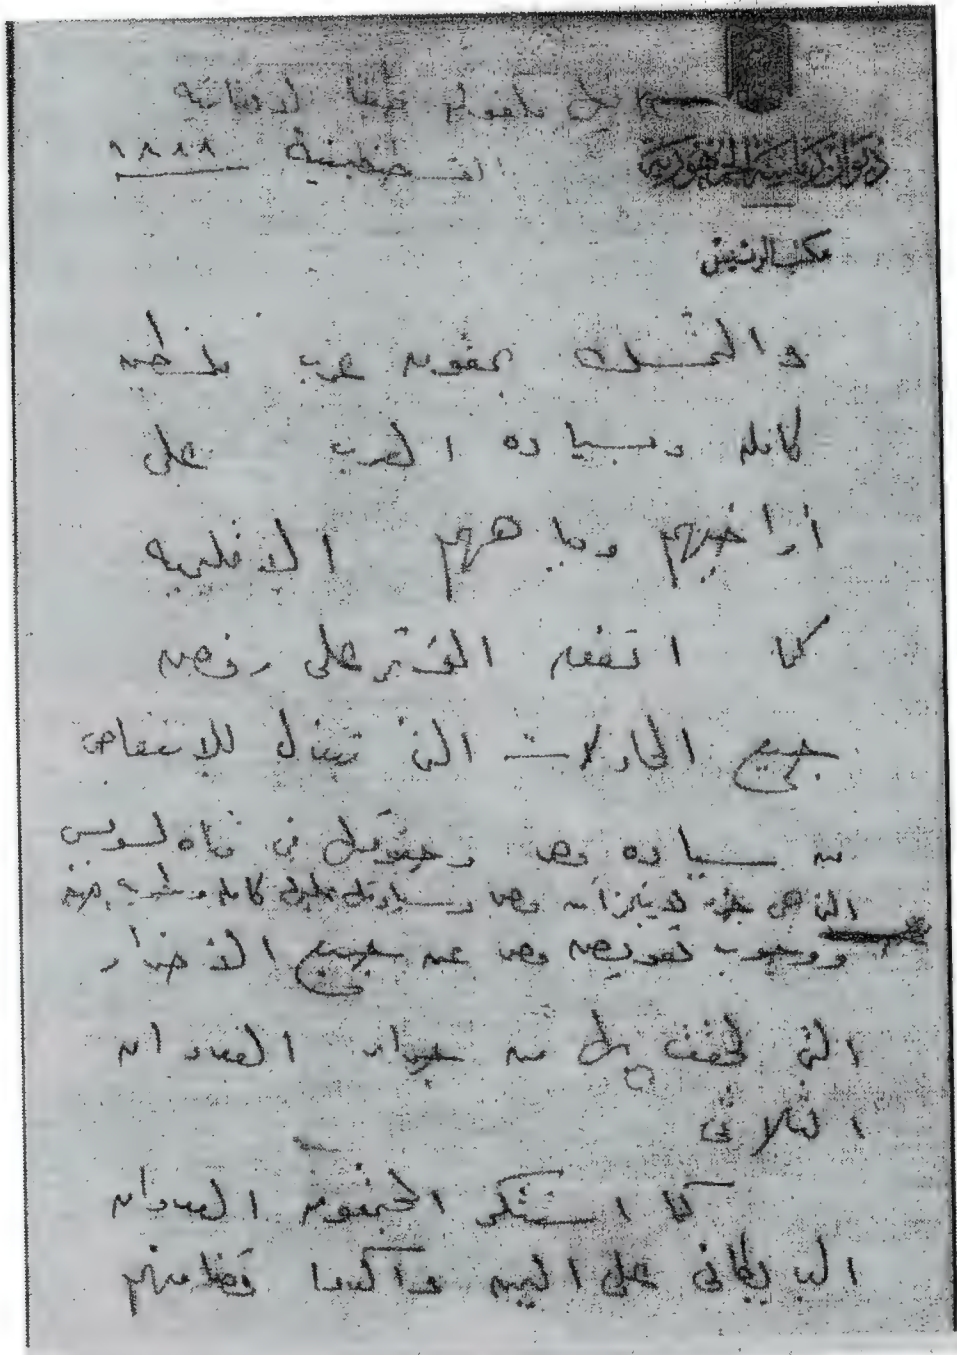 ديوان رئاسة الجمهورية
مكتب الرئيس
القسطنطينية ١٨٨٨
والتمسك بحقوق عرب فلسطين
كاملة وسيادة العرب على
أراضيهم ومياههم الاقليمية
كما اتفق المؤتمر على رفض
جميع المحاولات التي تبذل للانتقاص
من سيادة مصر وحقوقها في قناة السويس
التي هي جزء لا يتجزأ من مصر وسيادتها عليها كاملة
ووجوب تعويض مصر عن جميع الاضرار
التي لحقت بها من جراء العدوان
الثلاثي
كما استنكر المجتمعون العدوان
البريطاني على اليمن وأكدوا تضامنهم